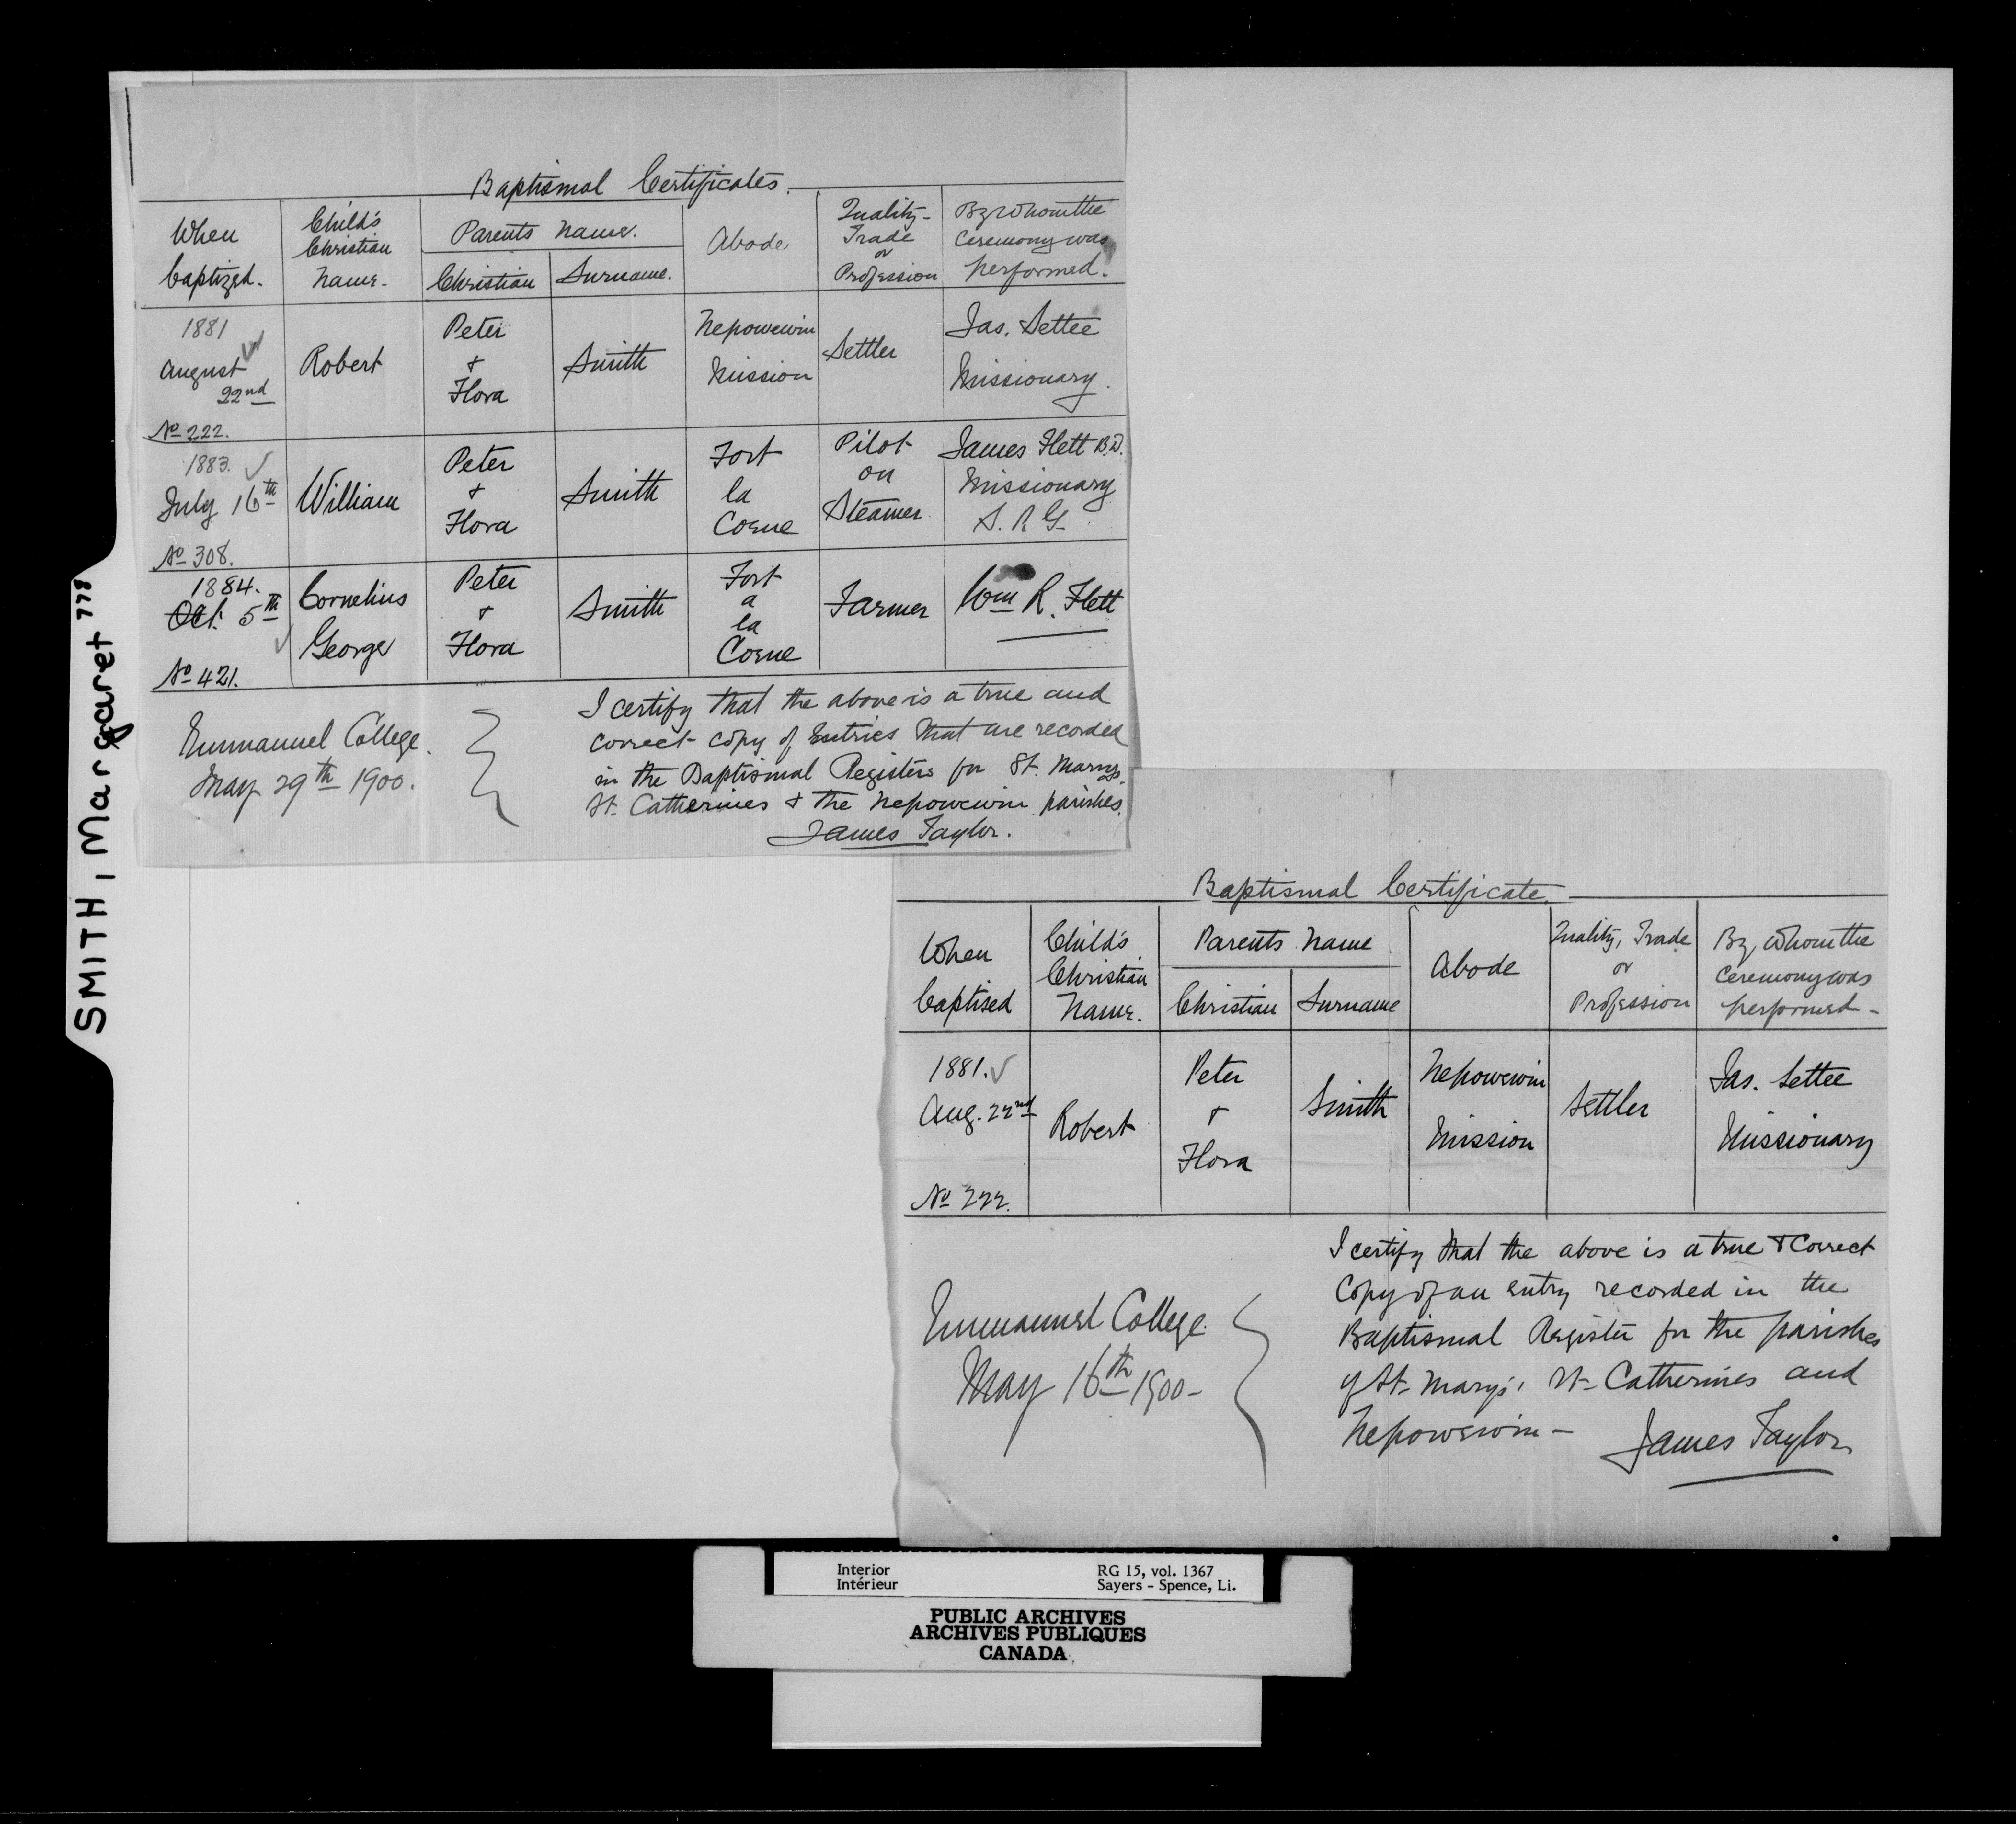 SMITH, Margaret
Baptismal Certificates.
When
baptized.
Child's
Christian
Name.
Parents Name.
Christian
Surname.
Abode
Quality
Trade
or
Profession
By whom the
Ceremony was
performed.
1881
August
22nd
No 222.
Robert
Peter
+
Flora
Smith
Nepowewin
Mission
Settler
Jas. Settee
Missionary.
1883.
July 16th
No 308.
William
Peter
+
Flora
Smith
Fort
la
Corne
Pilot
on
Steamer
James Flett B.D.
Missionary
S. R G.
1884.
Oct. 5th
No 421.
Cornelius
George
Peter
+
Flora
Smith
Fort
a
la
Corne
Farmer
Wm R. Flett
Emmanuel College.
May 29th 1900.
I certify that the above is a true and
correct copy of Entries that are recorded
in the Baptismal Registers for St. Marys.
St. Catherines + the Nepowewin parishes.
James Taylor.
Baptismal Certificate.
When
baptised
Child's
Christian
Name.
Parents Name
Christian
Surname
Abode
Quality, Trade
or
Profession
By whom the
Ceremony was
performed -
1881.
Aug. 22nd
No 222.
Robert
Peter
+
Flora
Smith
Nepowewin
Mission
Settler
Jas. Settee
Missionary
Emmanuel College.
May 16th 1900-
I certify that the above is a true + Correct
Copy of an entry recorded in the
Baptismal Register for the parishes
of St. Mary's, St. Catherines and
Nepowewin -
James Taylor
Interior
Intérieur
RG 15, vol. 1367
Sayers - Spence, Li.
PUBLIC ARCHIVES
ARCHIVES PUBLIQUES
CANADA